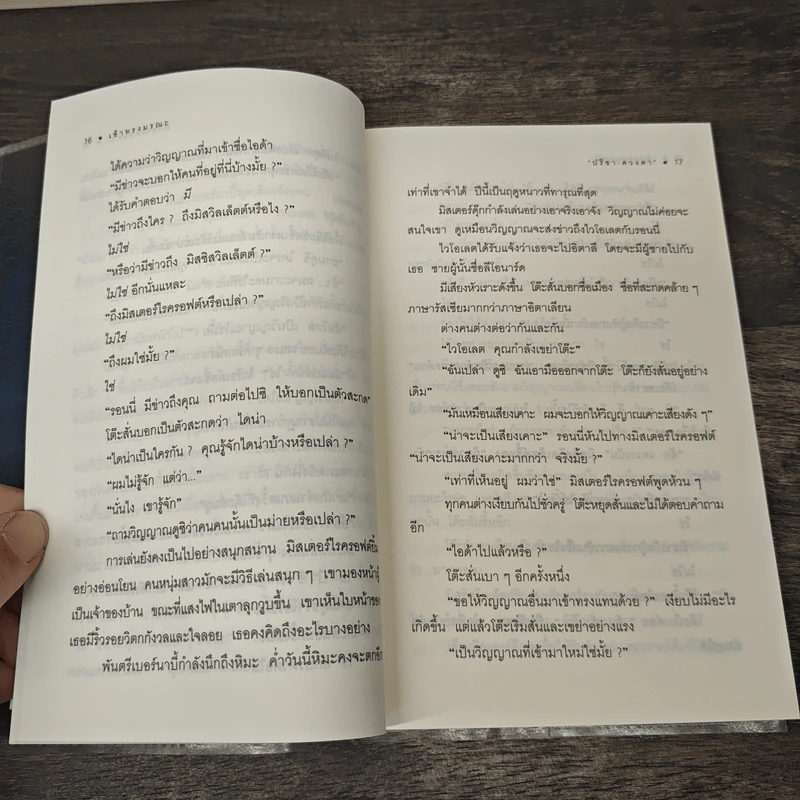 16 • เข้าทรงมรณะ
ได้ความว่าวิญญาณที่มาเข้าชื่อไอด้า
“มีข่าวจะบอกให้คนที่อยู่ที่นี่บ้างมั้ย ?”
ได้รับคำตอบว่า มี
“มีข่าวถึงใคร ? ถึงมิสวิลเล็ตต์หรือไง ?”
ไม่ใช่
“หรือว่ามีข่าวถึง มิสซิสวิลเล็ตต์ ?”
ไม่ใช่ อีกนั่นแหละ
“ถึงมิสเตอร์ไรครอฟต์หรือเปล่า ?”
ไม่ใช่
“ถึงผมใช่มั้ย ?”
ใช่
“รอนนี่ มีข่าวถึงคุณ ถามต่อไปซิ ให้บอกเป็นตัวสะกด”
โต๊ะสั่นบอกเป็นตัวสะกดว่า ไดน่า
“ไดน่าเป็นใครกัน ? คุณรู้จักไดน่าบ้างหรือเปล่า ?”
“ผมไม่รู้จัก แต่ว่า...”
“นั่นไง เขารู้จัก”
“ถามวิญญาณดูซิว่าคนคนนั้นเป็นม่ายหรือเปล่า ?”
การเล่นยังคงเป็นไปอย่างสนุกสนาน มิสเตอร์ไรครอฟต์ยิ้ม
อย่างอ่อนโยน คนหนุ่มสาวมักจะมีวิธีเล่นสนุก ๆ เขามองหน้าผู้
เป็นเจ้าของบ้าน ขณะที่แสงไฟในเตาลุกวูบขึ้น เขาเห็นใบหน้าของ
เธอมีริ้วรอยวิตกกังวลและใจลอย เธอคงคิดถึงอะไรบางอย่าง
พันตรีเบอร์นาบี้กำลังนึกถึงหิมะ ค่ำวันนี้หิมะคงจะตกอีก
‘ปรีชา-ดวงตา’ • 17
เท่าที่เขาจำได้ ปีนี้เป็นฤดูหนาวที่ทารุณที่สุด
มิสเตอร์ดุ๊กกำลังเล่นอย่างเอาจริงเอาจัง วิญญาณไม่ค่อยจะ
สนใจเขา ดูเหมือนวิญญาณจะส่งข่าวถึงไวโอเลตกับรอนนี่
ไวโอเลตได้รับแจ้งว่าเธอจะไปอิตาลี โดยจะมีผู้ชายไปกับ
เธอ ชายผู้นั้นชื่อลีโอนาร์ด
มีเสียงหัวเราะดังขึ้น โต๊ะสั่นบอกชื่อเมือง ชื่อที่สะกดคล้าย ๆ
ภาษารัสเซียมากกว่าภาษาอิตาเลียน
ต่างคนต่างต่อว่ากันและกัน
“ไวโอเลต คุณกำลังเขย่าโต๊ะ”
“ฉันเปล่า ดูซิ ฉันเอามือออกจากโต๊ะ โต๊ะก็ยังสั่นอยู่อย่าง
เดิม”
“มันเหมือนเสียงเคาะ ผมจะบอกให้วิญญาณเคาะเสียงดัง ๆ”
“น่าจะเป็นเสียงเคาะ” รอนนี่หันไปทางมิสเตอร์ไรครอฟต์
“น่าจะเป็นเสียงเคาะมากกว่า จริงมั้ย ?”
“เท่าที่เห็นอยู่ ผมว่าใช่” มิสเตอร์ไรครอฟต์พูดห้วน ๆ
ทุกคนต่างเงียบกันไปชั่วครู่ โต๊ะหยุดสั่นและไม่ได้ตอบคำถาม
อีก
“ไอด้าไปแล้วหรือ ?”
โต๊ะสั่นเบา ๆ อีกครั้งหนึ่ง
“ขอให้วิญญาณอื่นมาเข้าทรงแทนด้วย ?” เงียบไม่มีอะไร
เกิดขึ้น แต่แล้วโต๊ะเริ่มสั่นและเขย่าอย่างแรง
“เป็นวิญญาณที่เข้ามาใหม่ใช่มั้ย ?”